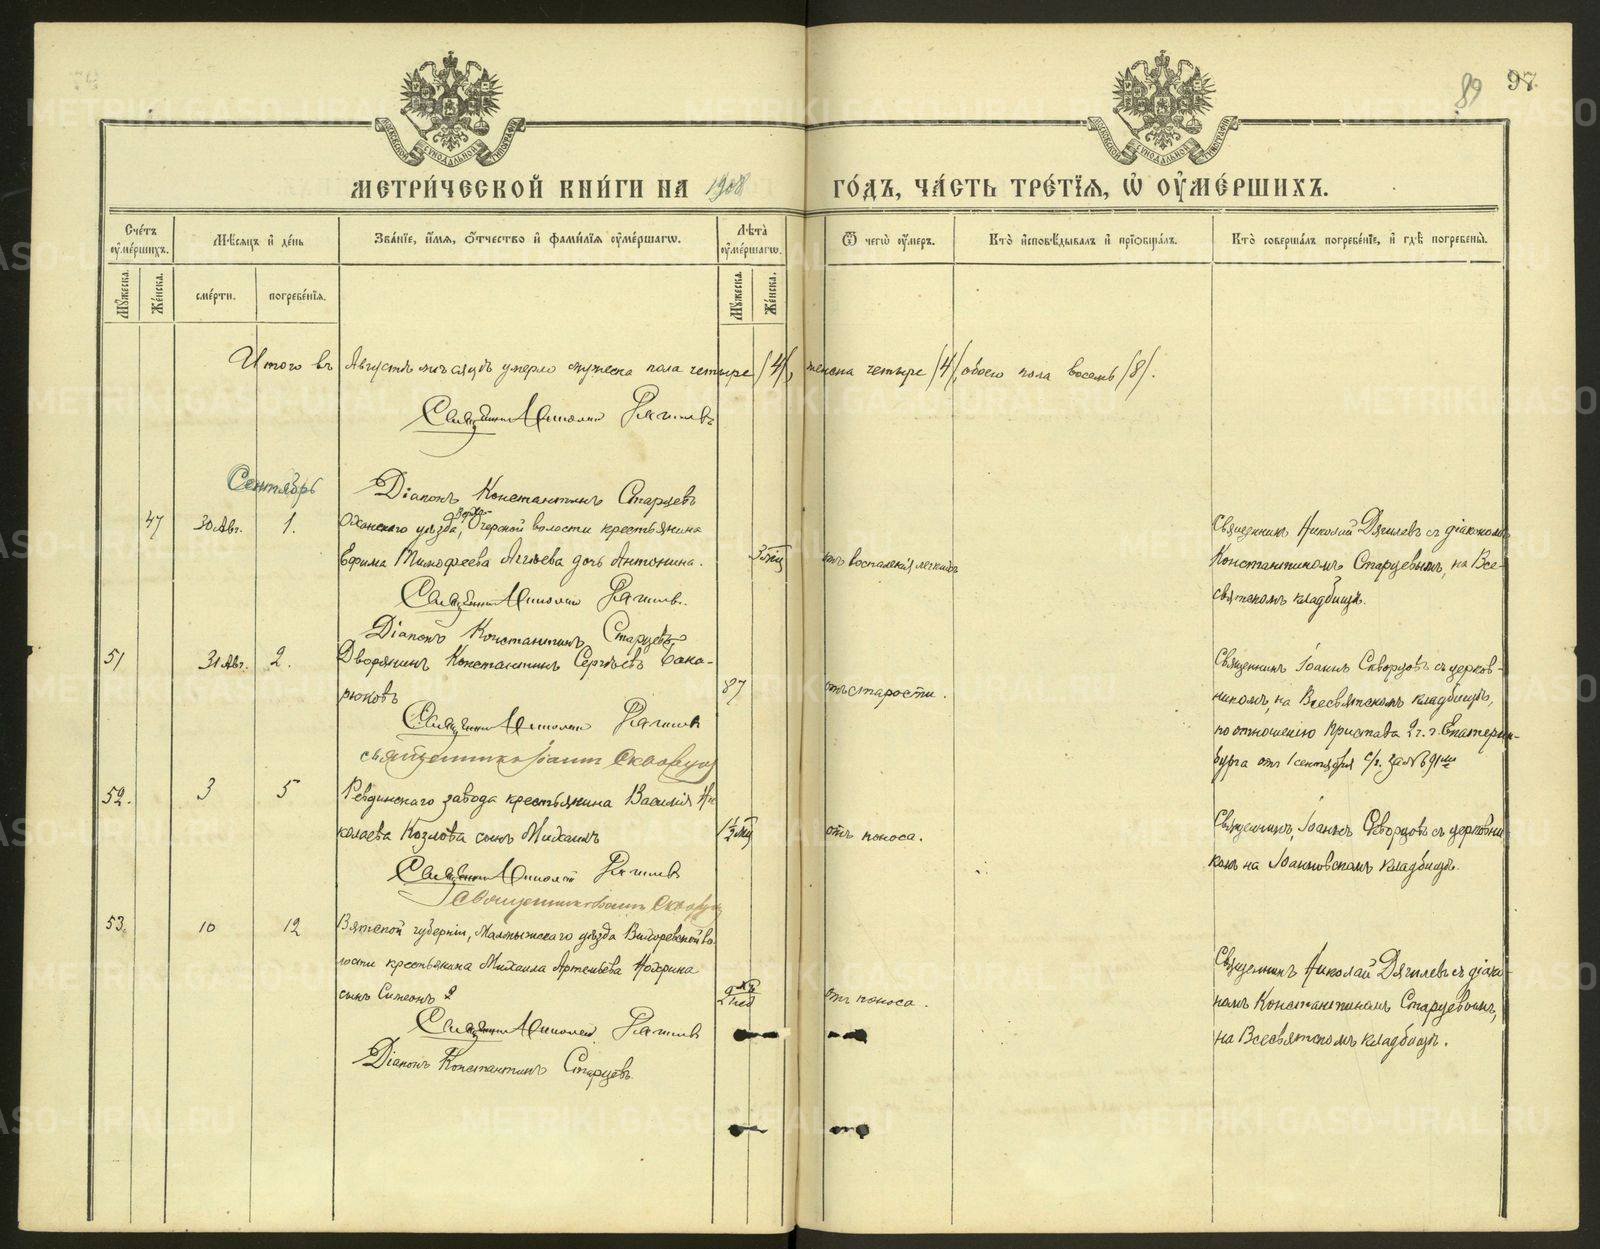 89 97.
МОСКОВСКОЙ СѴНОДАЛЬНОЙ ТИПОГРАФІИ
МОСКОВСКОЙ СѴНОДАЛЬНОЙ ТИПОГРАФІИ
МЕТРИ́ЧЕСКОЙ КНИ́ГИ НА 1908 ГО́ДЪ, ЧА́СТЬ ТРЕ́ТІЯ, Ѡ ОУ҆МЕ́РШИХЪ.
Счетъ оумершихъ.
Мѣсяцъ и день
Званіе, имя, отчество и фамилія оумершагѡ.
Лѣта оумершагѡ.
Ѿ чегѡ оумеръ.
Кто исповѣдывалъ и пріобщалъ.
Кто совершалъ погребеніе, и гдѣ погребены.
Мужеска.
Женска.
смерти.
погребенія.
Мужеска.
Женска.
Итого въ Августѣ мѣсяцѣ умерло мужеска пола четыре /4/, женска четыре /4/, обоего пола восемь /8/.
Священникъ Николай Дягилевъ
Діаконъ Константинъ Старцевъ
Сентябрь
47 30 Авг. 1. Оханскаго уѣзда, Очерской волости крестьянина
Ефима Тимофеева дочь Антонина. 3 мѣс. отъ воспаленія легкихъ
Священникъ Николай Дягилевъ съ діакономъ
Константиномъ Старцевымъ, на Все-
святскомъ кладбищѣ.
Священникъ Николай Дягилевъ.
Діаконъ Константинъ Старцевъ
51 31 Авг. 2. Дворянинъ Константинъ Сергѣевъ Бака-
рюковъ 87 отъ старости.
Священникъ Іоаннъ Скворцовъ съ церков-
никомъ, на Всесвятскомъ кладбищѣ,
по отношенію Пристава 2 ч. г. Екатерин-
бурга отъ 1 сентября с/г. за №
Священникъ Николай Дягилевъ
священникъ Іоаннъ Скворцовъ
52. 3 5 Ревдинскаго завода крестьянина Василія Ни-
колаева Козлова сынъ Михаилъ 1½ мѣс. отъ поноса.
Священникъ Іоаннъ Скворцовъ съ церковни-
комъ на Іоанновскомъ кладбищѣ.
Священникъ Николай Дягилевъ
Священникъ Іоаннъ Скворцовъ
53. 10 12 Вятской губерніи, Малмыжскаго уѣзда во-
лости крестьянина Михаила Артемьева
сынъ Симеонъ 2 нед отъ поноса.
Священникъ Николай Дягилевъ съ діако-
номъ Константиномъ Старцевымъ,
на Всесвятскомъ кладбищѣ.
Священникъ Николай Дягилевъ
Діаконъ Константинъ Старцевъ.
METRIKI.GASO-URAL.RU